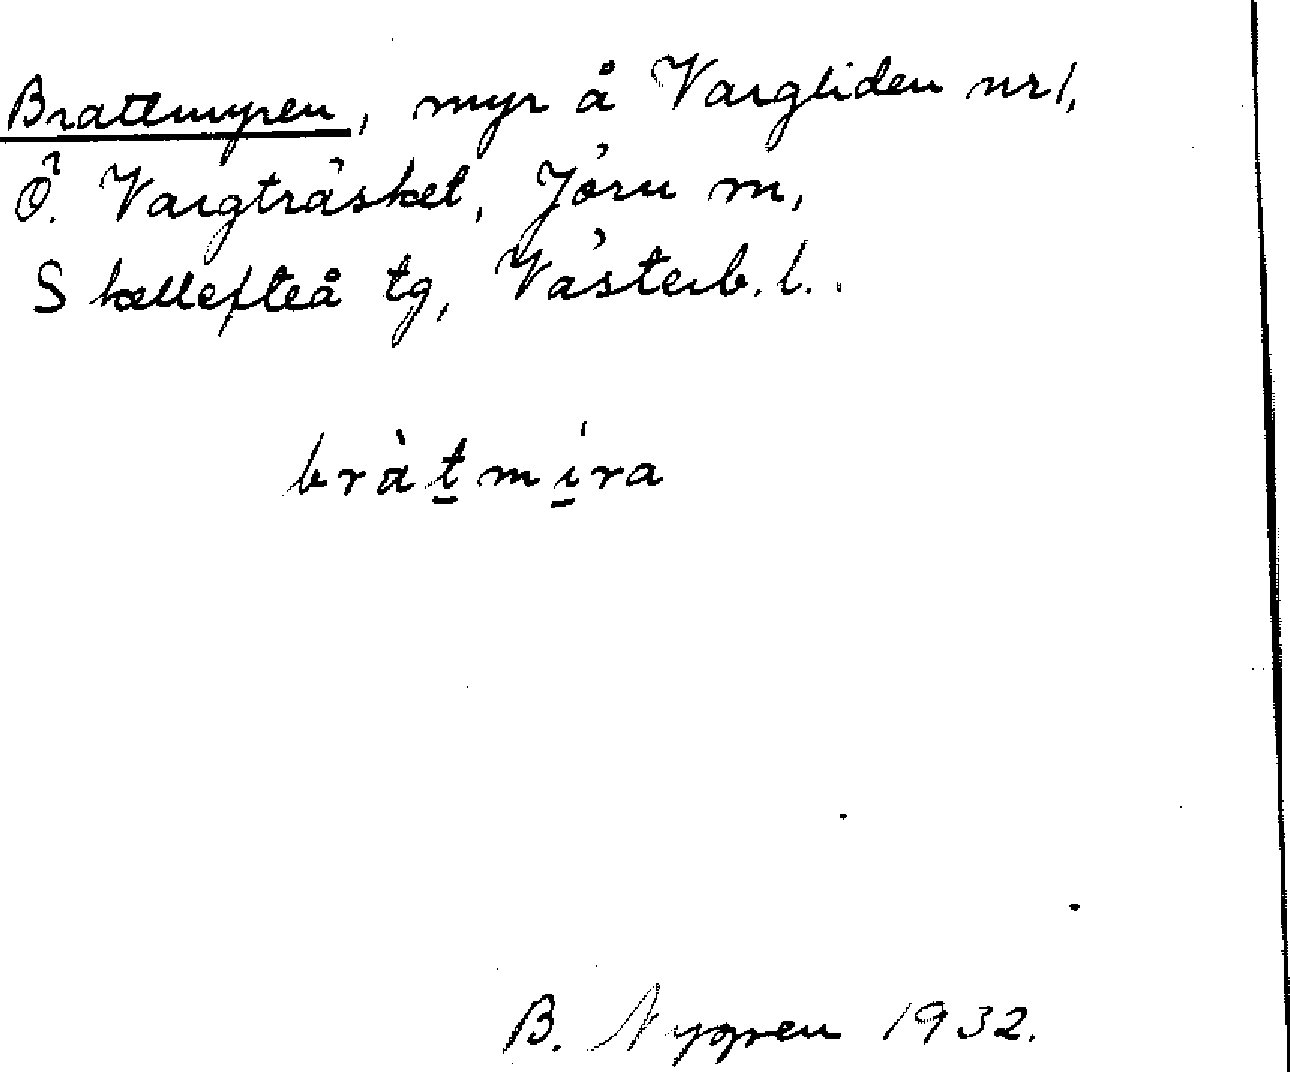 Brattmyren, myr å Vargliden nr 1,
Ö. Vargträsket, Jörn m,
Skellefteå tg, Västerb. l..
bràt̲mí̲ra
B. Nygren 1932.